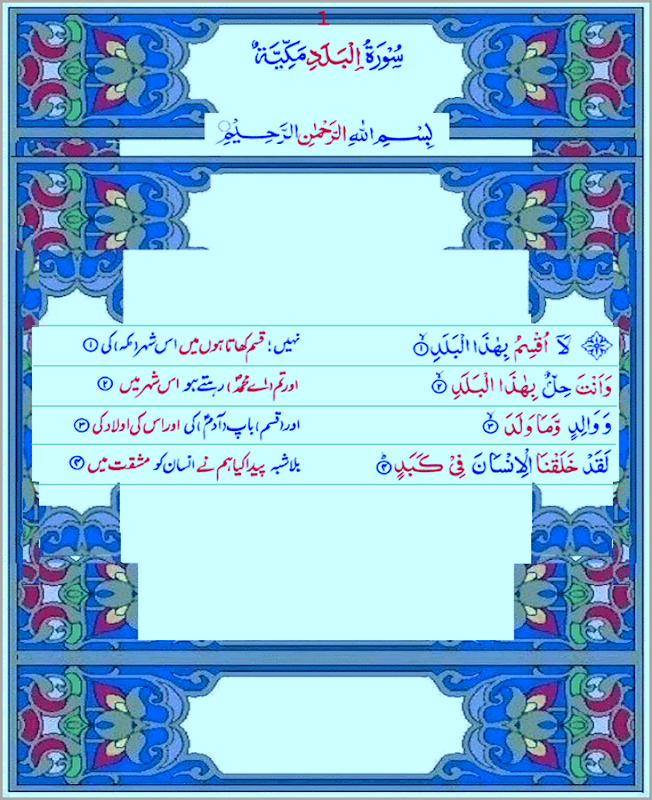 1
سُوْرَةُ الْبَلَدِ مَكِّيَّةٌ
بِسْمِ اللهِ الرَّحْمٰنِ الرَّحِيْمِ
لَاۤ اُقْسِمُ بِهٰذَا الْبَلَدِۙ ۱ نہیں؛ قسم کھاتا ہوں میں اس شہر (مکہ) کی ۱
وَاَنْتَ حِلٌّۢ بِهٰذَا الْبَلَدِۙ ۲ اور تم (اے محمدؐ) رہتے ہو اس شہر میں ۲
وَ وَالِدٍ وَّمَا وَلَدَۙ ۳ اور (قسم) باپ (آدمؑ) کی اور اس کی اولاد کی ۳
لَقَدْ خَلَقْنَا الْاِنْسَانَ فِیْ كَبَدٍؕ ۴ بلاشبہ پیدا کیا ہم نے انسان کو مشقت میں ۴